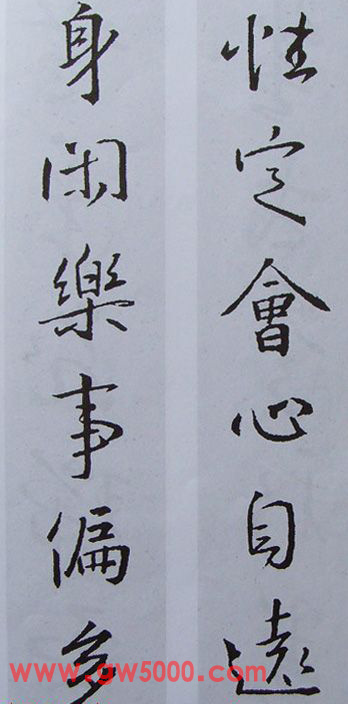 性定會心自遠
身閑樂事偏多
www.gw5000.com